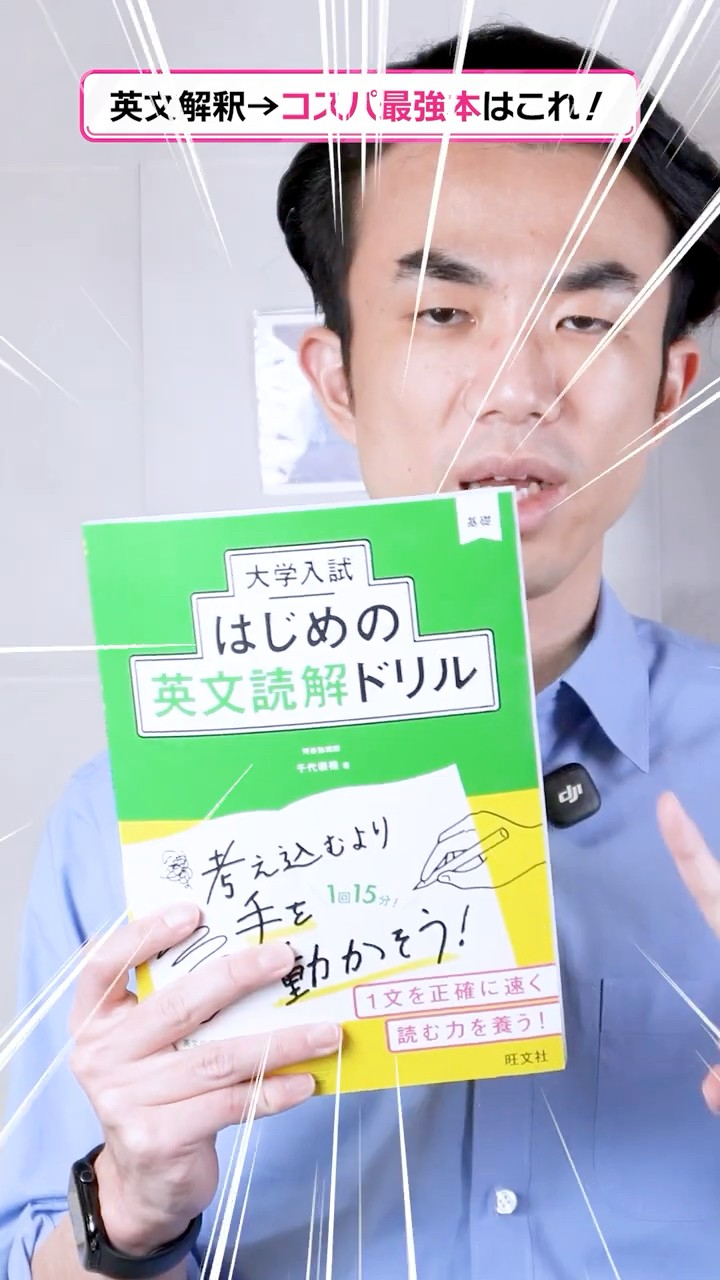 英文解釈→コスパ最強本はこれ!
基礎
大学入試
はじめの
英文読解ドリル
著
考え込むより
手を
1回15分!
動かそう!
1文を正確に速く
読む力を養う!
旺文社
dji